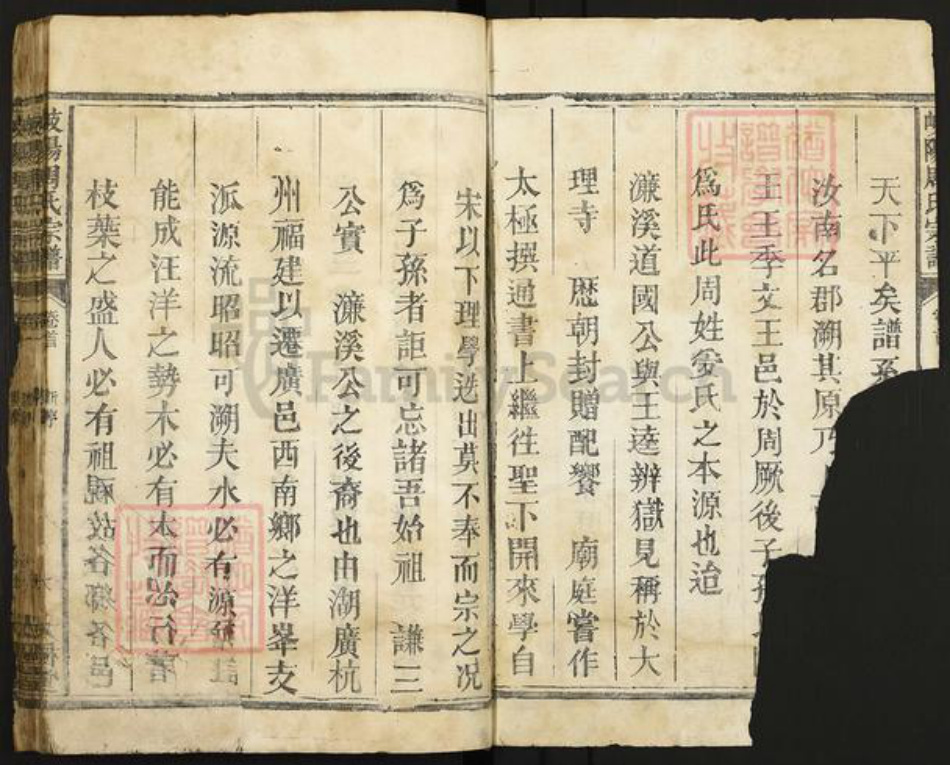 天下平矣譜系
汝南名郡溯其原乃
王王季文王邑於周厥後子孫
爲氏此周姓受氏之本源也迨
濂溪道國公與王逵辨獄見稱於大
理寺 歷朝封贈配饗 廟庭嘗作
太極撰通書上繼徃聖下開來學自
宋以下理學迭出莫不奉而宗之况
爲子孫者詎可忘諸吾始祖 謙三
公實 濂溪公之後裔也由湖廣杭
州福建以遷廣邑西南鄉之洋峯支
派源流昭昭可溯夫水必有源
能成汪洋之勢木必有本而
枝葉之盛人必有祖 故各鄉各邑
岐陽周氏宗譜 卷首
FamilySearch